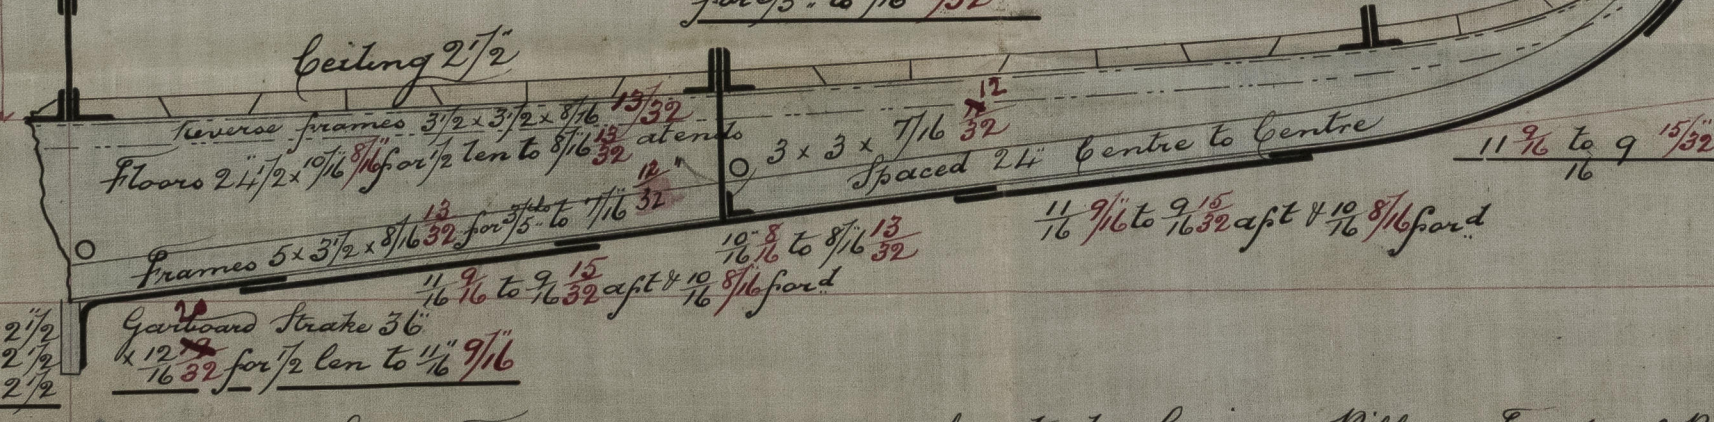 for 3/5 to 9/16 /32
Ceiling 2 1/2"
Reverse frames 3 1/2 x 3 1/2 x 8/16 13/32
Floors 24 1/2 x 10/16 8/16 for 1/2 len to 8/16 13/32 at ends
3 x 3 x 7/16 12/32
Spaced 24" Centre to Centre
Frames 5 x 3 1/2 x 8/16 13/32 for 3/5 ths to 7/16" 12/32"
11/16 9/16 to 9/16 15/32
10/16" 8/16 to 8/16 13/32
11/16 9/16" to 9/16 15/32 aft & 10/16 8/16 for'd
11/16 9/16 to 9/16 15/32 aft & 10/16 8/16" for'd
Garboard Strake 36"
x 12/16 /32 for 1/2 len to 11/16" 9/16
2 1/2"
2 1/2
2 1/2